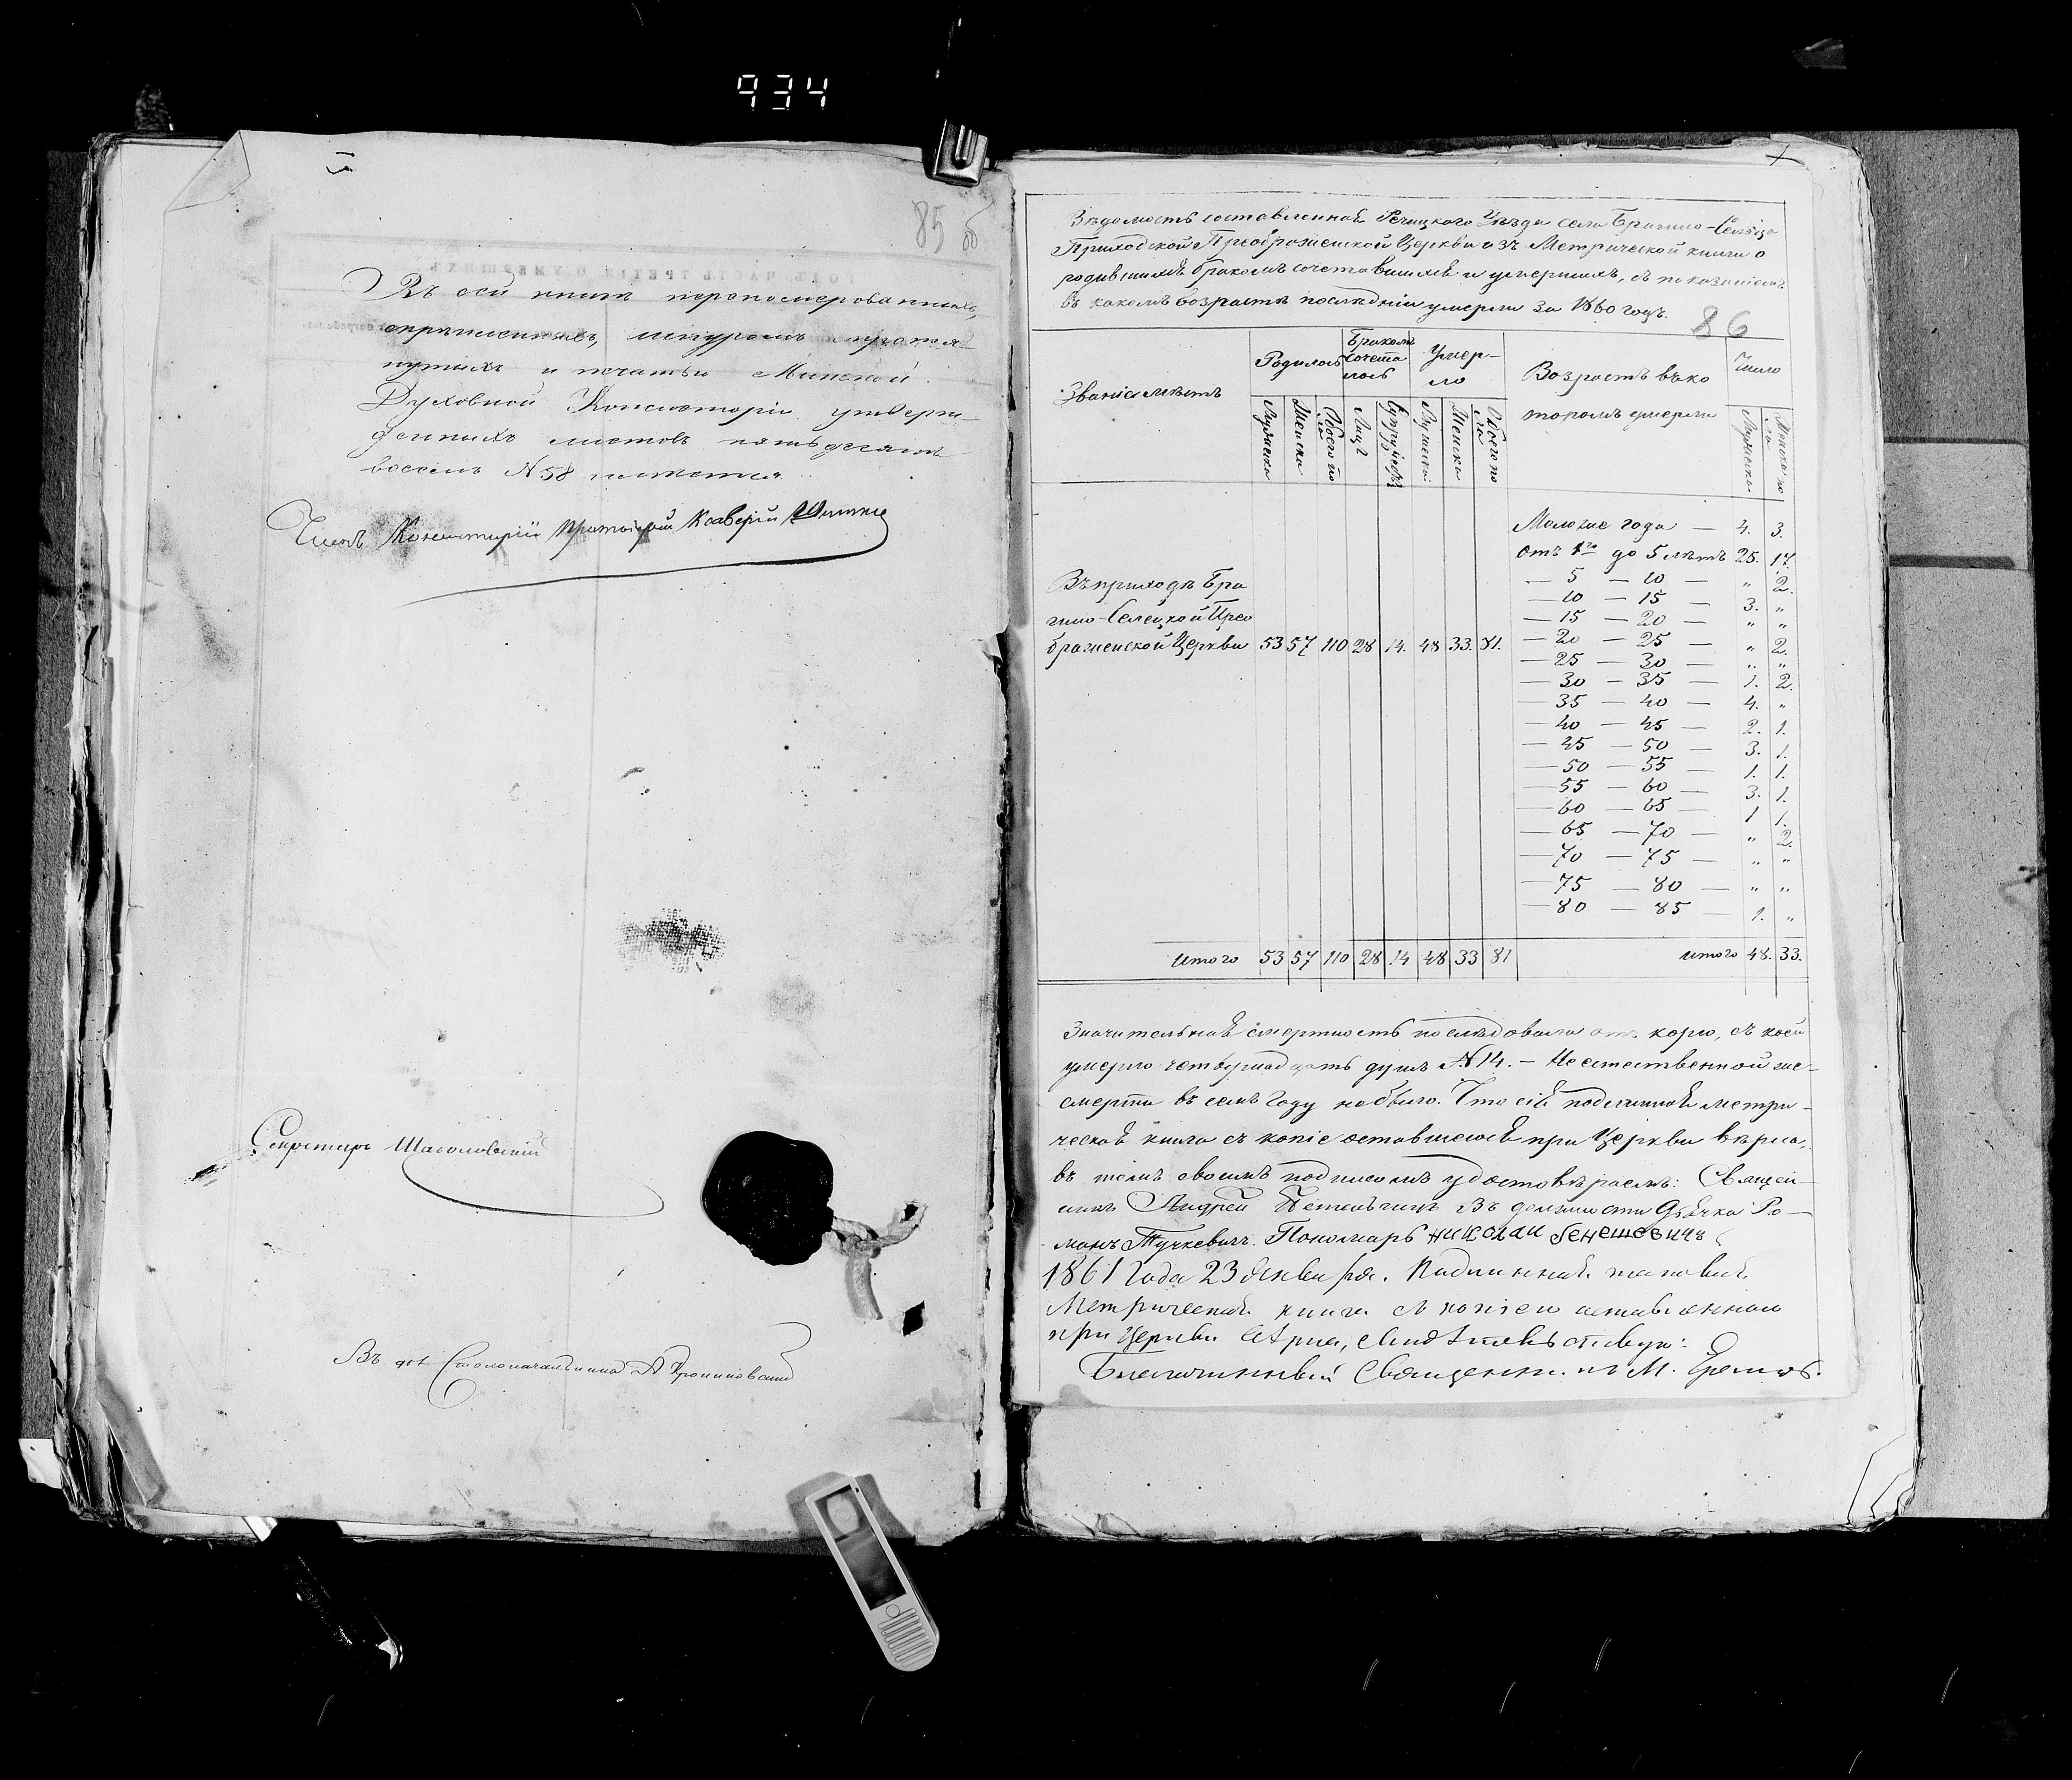 934
85 об
Въ сей книгѣ перенумерованныхъ,
скрѣпленныхъ, шнуромъ протя-
нутыхъ и печатью Минской
Духовной Консисторіи утверж-
денныхъ листовъ пятьдесятъ
восемь N 58 имѣется.
Членъ Консисторіи Протоіерей
Секретарь
Въ дол. Столоначальника А.
Вѣдомость составленная Речицкого Уѣзда села Брагино-Сельца
Приходской Преображенской Церкви изъ Метрической книги о
родившихся бракомъ сочетавшихся и умершихъ, съ показаніемъ
въ какомъ возрастѣ послѣдніи умерли за 1860 годъ.
86
Званіе мѣстъ
Родилось
Бракомъ сочеталось
Умерло
Возрастъ въ ко
торомъ умерли
Число
Мужеска
Женска
Обоего по ла
Лицъ
Супружествъ
Мужеска
Женска
Обоего по ла
Мужеска
Женска по ла
Моложе года — 4. 3.
отъ 1го до 5 лѣтъ 25. 17.
— 5 — 10 — " 2.
— 10 — 15 — 3. "
— 15 — 20 — " "
— 20 — 25 — " 2.
— 25 — 30 — " "
— 30 — 35 — 1. 2.
— 35 — 40 — 4. "
— 40 — 45 — 2. 1.
— 45 — 50 — 3. 1.
— 50 — 55 — 1. 1.
— 55 — 60 — 3. 1.
— 60 — 65 — 1 1.
— 65 — 70 — " 2.
— 70 — 75 — " "
— 75 — 80 — " "
— 80 — 85 — 1. "
Въ приходѣ Бра
гино-Селецкой Прео
браженской Церкви 53 57 110 28 14. 48 33. 81.
Итого 53 57 110 28 14 48 33 81 итого 48. 33.
Значительная смертность послѣдовала отъ корю, съ коей
умерло четырнадцать душъ N 14. — Неестественной же
смерти въ семъ году небыло. Что сія подлинная метри-
ческая книга съ копіе оставшеюся при Церкви вѣрна,
въ томъ своимъ подписомъ удостовѣряемъ: Священ-
никъ Андрей Въ должности Дьячка Ро-
манъ Тучкевичъ. Пономарь Николай Генешевичъ
1861 года 23 Января. Подлинная таковая
Метрическая книга съ копіею оставленною
при Церкви вѣрна, свидѣтельствую:
Благочинный Священникъ М.